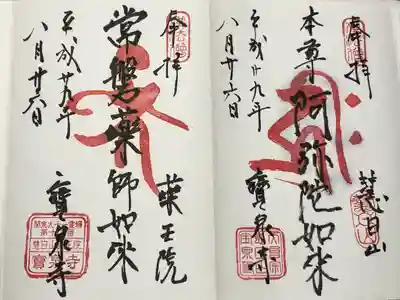 奉拝
本尊阿弥陀如来
平成廿九年
八月廿六日
寶泉寺
奉拝
常磐薬師如来
薬王院
平成廿九年
八月廿六日
寶泉寺